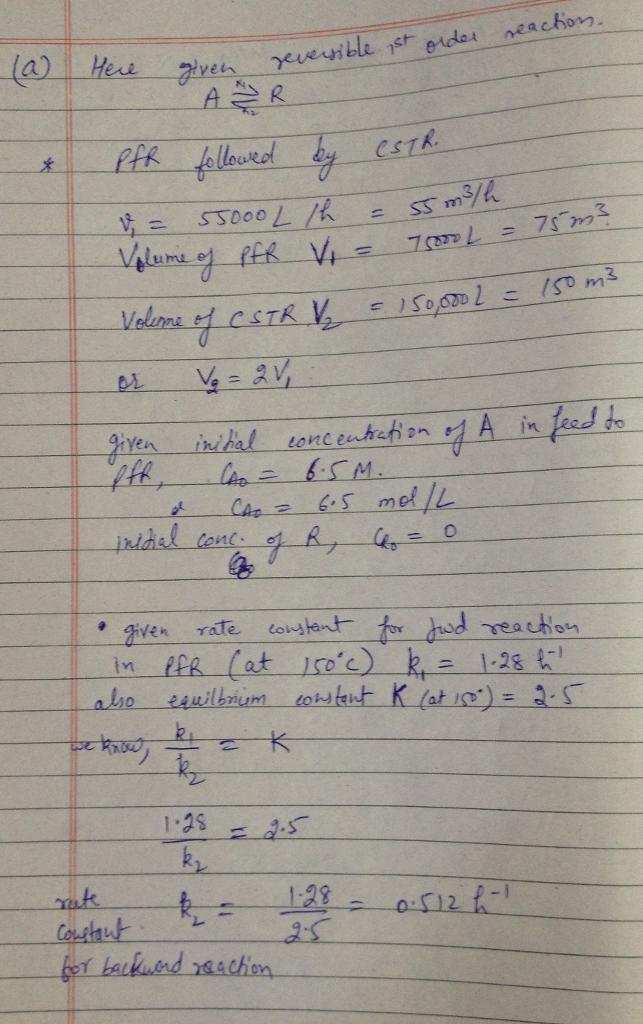 (a) Here given reversible 1st order reaction.
A ⇌ R
k1
k2
* PFR followed by CSTR.
v1 = 55000 L /h = 55 m³/h
Volume of PFR V1 = 75000 L = 75 m³
Volume of CSTR V2 = 150,000 L = 150 m³
or V2 = 2V1
given initial concentration of A in feed to
PFR, CA0 = 6.5 M.
CA0 = 6.5 mol/L
initial conc. of R, CR0 = 0
• given rate constant for fwd reaction
in PFR (at 150°C) k1 = 1.28 h⁻¹
also equilbrium constant K (at 150°) = 2.5
we know, k1/k2 = K
1.28/k2 = 2.5
rate constant k2 = 1.28/2.5 = 0.512 h⁻¹
for backward reaction